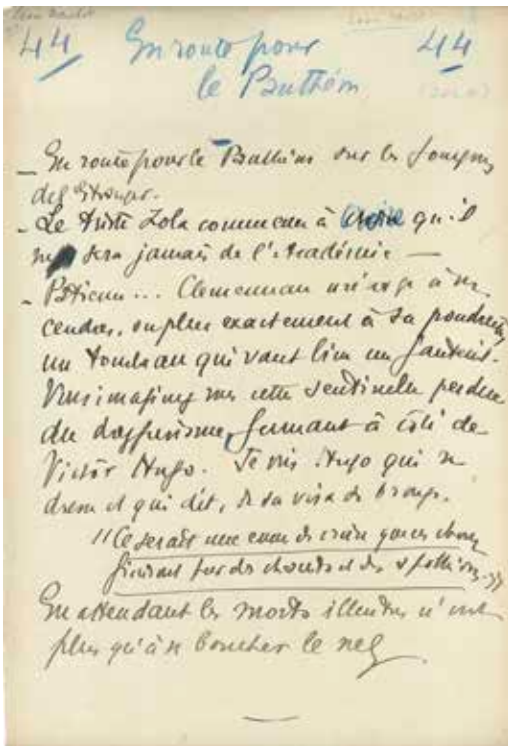 44 En route pour 44
le Panthéon
— En route pour le Panthéon sur les
des Étranger.
- Le triste Zola commence à croire qu'il
ne sera jamais de l'Académie —
- Patience... Clemenceau à ses
cendres, ou plus exactement à sa poudrette,
un tombeau qui vaut bien un fauteuil.
Vous imaginez vous cette sentinelle perdue
du dreyfusisme, fumant à côté de
Victor Hugo. Je vois Hugo qui se
dresse et qui dit, de sa voix de bronze.
"Ce serait une que ces choses
finissent par des et des "
En attendant les morts illustres n'ont
plus qu'à se boucher le nez